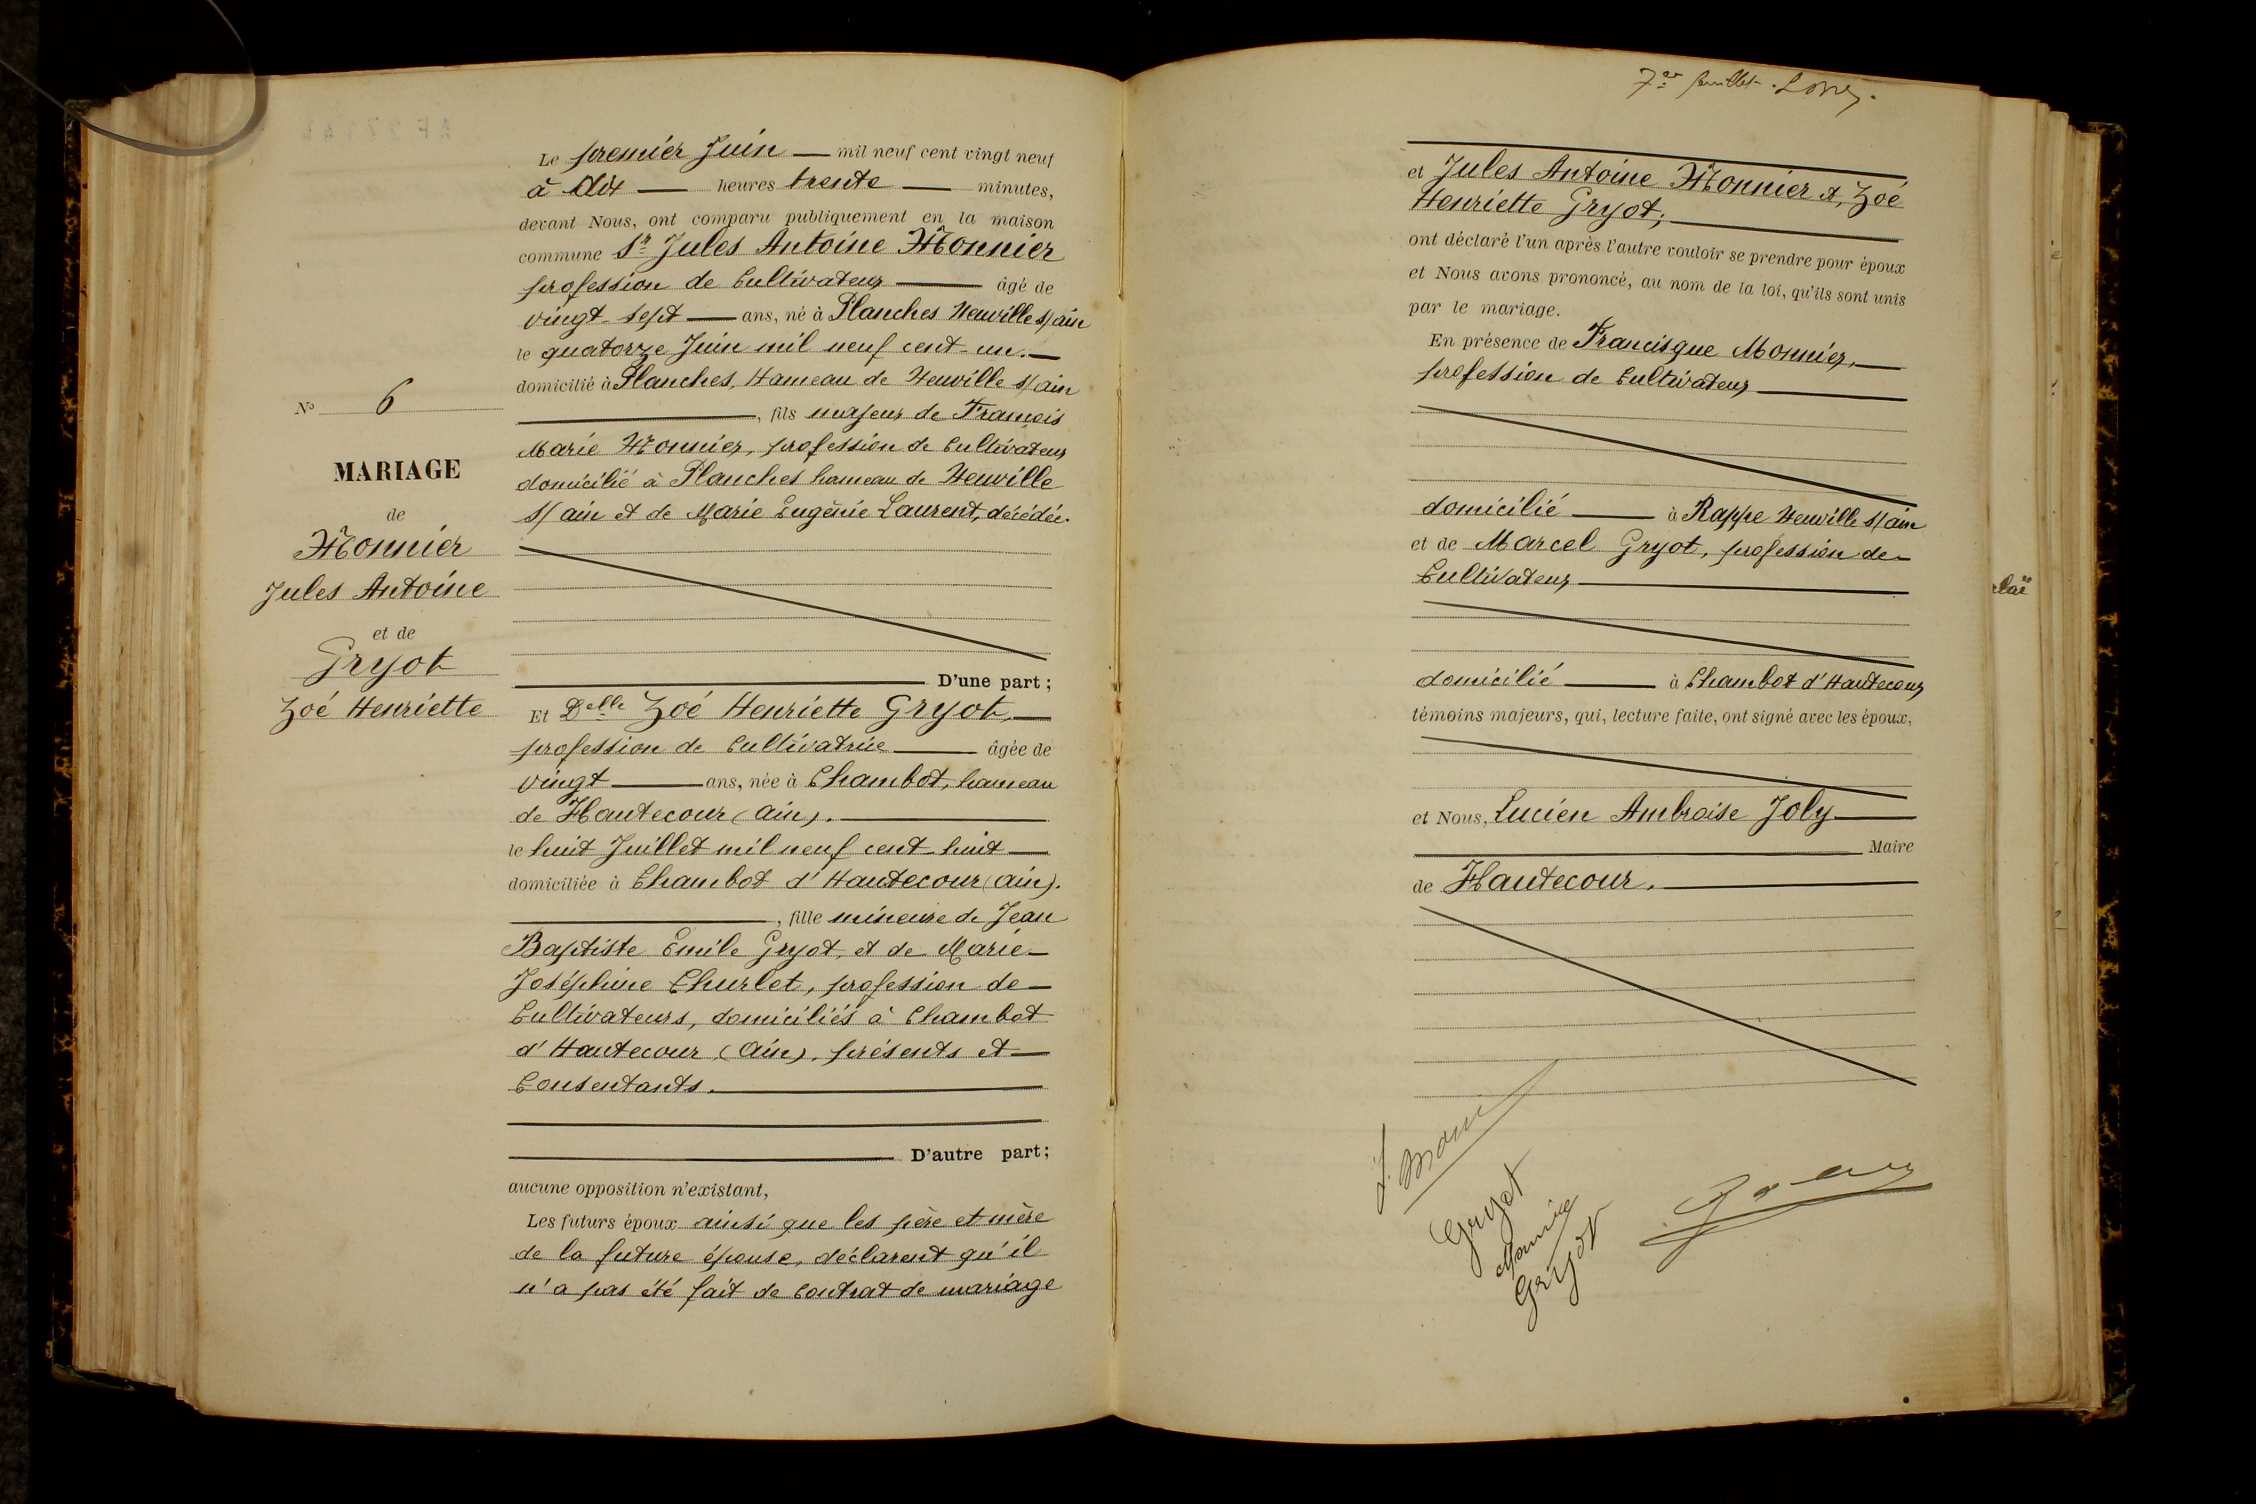 N° 6
MARIAGE
de
Monnier
Jules Antoine
et de
Gryot
Zoé Henriette
Le premier Juin mil neuf cent vingt neuf
à dix heures trente minutes,
devant Nous, ont comparu publiquement en la maison
commune Sr Jules Antoine Monnier
profession de Cultivateur âgé de
vingt-sept ans, né à Planches Neuville s/ ain
le quatorze Juin mil neuf cent-un.
domicilié à Planches, Hameau de Neuville s/ ain
, fils majeur de François
Marie Monnier, profession de Cultivateur
domicilié à Planches hameau de Neuville
s/ ain et de Marie Eugénie Laurent, décédée.
D'une part ;
Et Delle Zoé Henriette Gryot,
profession de Cultivatrice âgée de
vingt ans, née à Chambot, hameau
de Hautecour (ain).
le huit Juillet mil neuf cent huit
domiciliée à Chambot d'Hautecour (ain).
, fille mineure de Jean
Baptiste Emile Gryot, et de Marie
Joséphine Churlet, profession de
Cultivateurs, domiciliés à Chambot
d'Hautecour (ain). présents et
Consentants.
D'autre part ;
aucune opposition n'existant,
Les futurs époux ainsi que les père et mère
de la future épouse, déclarent qu'il
n'a pas été fait de contrat de mariage
7er feuillet.
et Jules Antoine Monnier et, Zoé
Henriette Gryot ;
ont déclaré l'un après l'autre vouloir se prendre pour époux
et Nous avons prononcé, au nom de la loi, qu'ils sont unis
par le mariage.
En présence de Francisque Monnier,
profession de Cultivateur
domicilié à Rappe Neuville s/ ain
et de Marcel Gryot, profession de
Cultivateur
domicilié à Chambot d'Hautecour
témoins majeurs, qui, lecture faite, ont signé avec les époux,
et Nous, Lucien Ambroise Joly
Maire
de Hautecour.
Gryot
Gryot